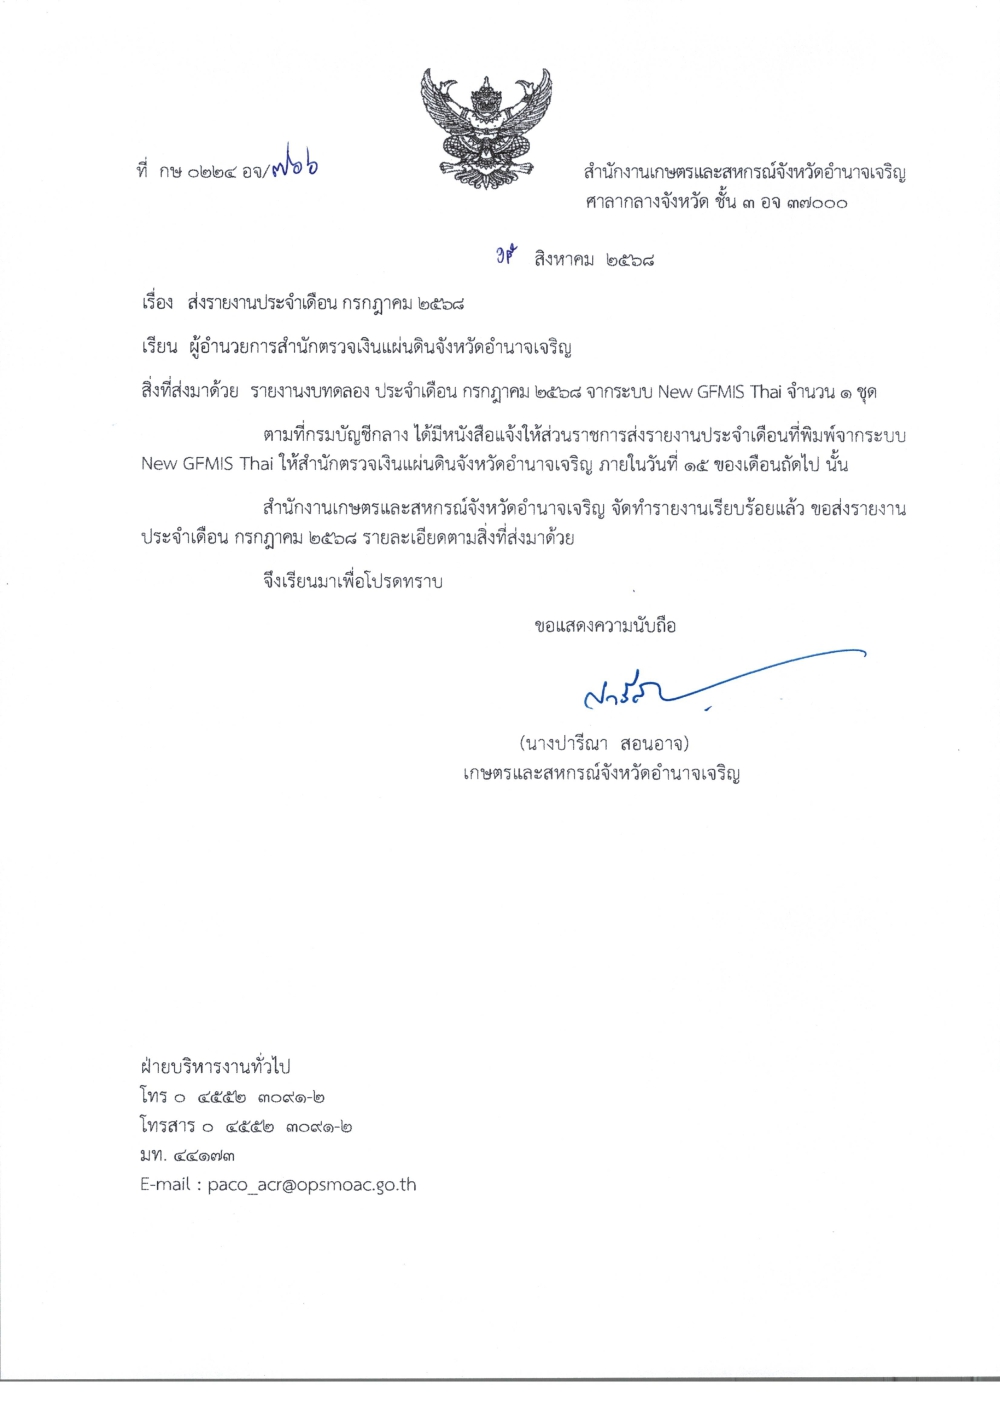 ที่  กษ ๐๒๒๔ อจ/๗๖๖
สำนักงานเกษตรและสหกรณ์จังหวัดอำนาจเจริญ
ศาลากลางจังหวัด ชั้น ๓ อจ ๓๗๐๐๐
สิงหาคม  ๒๕๖๘
เรื่อง  ส่งรายงานประจำเดือน กรกฎาคม ๒๕๖๘
เรียน  ผู้อำนวยการสำนักตรวจเงินแผ่นดินจังหวัดอำนาจเจริญ
สิ่งที่ส่งมาด้วย  รายงานงบทดลอง ประจำเดือน กรกฎาคม ๒๕๖๘ จากระบบ New GFMIS Thai จำนวน ๑ ชุด
ตามที่กรมบัญชีกลาง ได้มีหนังสือแจ้งให้ส่วนราชการส่งรายงานประจำเดือนที่พิมพ์จากระบบ
New GFMIS Thai ให้สำนักตรวจเงินแผ่นดินจังหวัดอำนาจเจริญ ภายในวันที่ ๑๕ ของเดือนถัดไป นั้น
สำนักงานเกษตรและสหกรณ์จังหวัดอำนาจเจริญ จัดทำรายงานเรียบร้อยแล้ว ขอส่งรายงาน
ประจำเดือน กรกฎาคม ๒๕๖๘ รายละเอียดตามสิ่งที่ส่งมาด้วย
จึงเรียนมาเพื่อโปรดทราบ
ขอแสดงความนับถือ
(นางปารีณา  สอนอาจ)
เกษตรและสหกรณ์จังหวัดอำนาจเจริญ
ฝ่ายบริหารงานทั่วไป
โทร ๐  ๔๕๕๒  ๓๐๙๑-๒
โทรสาร ๐  ๔๕๕๒  ๓๐๙๑-๒
มท. ๔๔๑๗๓
E-mail : paco_acr@opsmoac.go.th